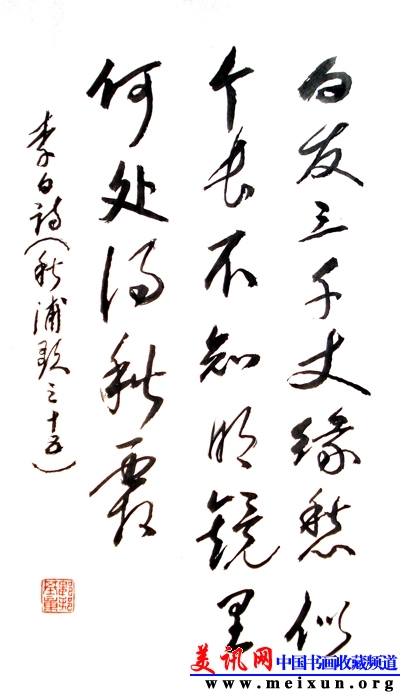 白发三千丈缘愁似
个长不知明镜里
何处得秋霜
李白诗(秋浦歌之十五)
美讯网 中国书画收藏频道
www.meixun.org